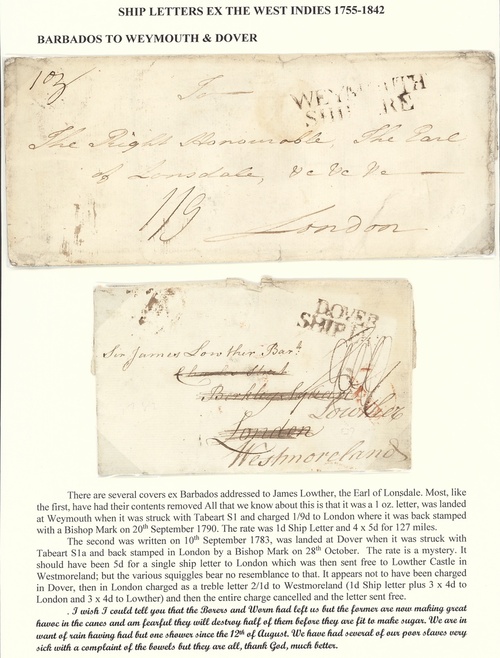 SHIP LETTERS EX THE WEST INDIES 1755-1842
BARBADOS TO WEYMOUTH & DOVER
1oz
To
WEYMOUTH
SHIP RE
The Right Honourable The Earl
of Lonsdale, &c &c &c
1/9
London
DOVER
SHIP
Sir James Lowther Bart
Berkley Square
Lowther
London
Westmoreland
There are several covers ex Barbados addressed to James Lowther, the Earl of Lonsdale. Most, like
the first, have had their contents removed All that we know about this is that it was a 1 oz. letter, was landed
at Weymouth when it was struck with Tabeart S1 and charged 1/9d to London where it was back stamped
with a Bishop Mark on 20th September 1790. The rate was 1d Ship Letter and 4 x 5d for 127 miles.
The second was written on 10th September 1783, was landed at Dover when it was struck with
Tabeart S1a and back stamped in London by a Bishop Mark on 28th October. The rate is a mystery. It
should have been 5d for a single ship letter to London which was then sent free to Lowther Castle in
Westmoreland; but the various squiggles bear no resemblance to that. It appears not to have been charged
in Dover, then in London charged as a treble letter 2/1d to Westmoreland (1d Ship letter plus 3 x 4d to
London and 3 x 4d to Lowther) and then the entire charge cancelled and the letter sent free.
. I wish I could tell you that the Borers and Worm had left us but the former are now making great
havoc in the canes and am fearful they will destroy half of them before they are fit to make sugar. We are in
want of rain having had but one shower since the 12th of August. We have had several of our poor slaves very
sick with a complaint of the bowels but they are all, thank God, much better.